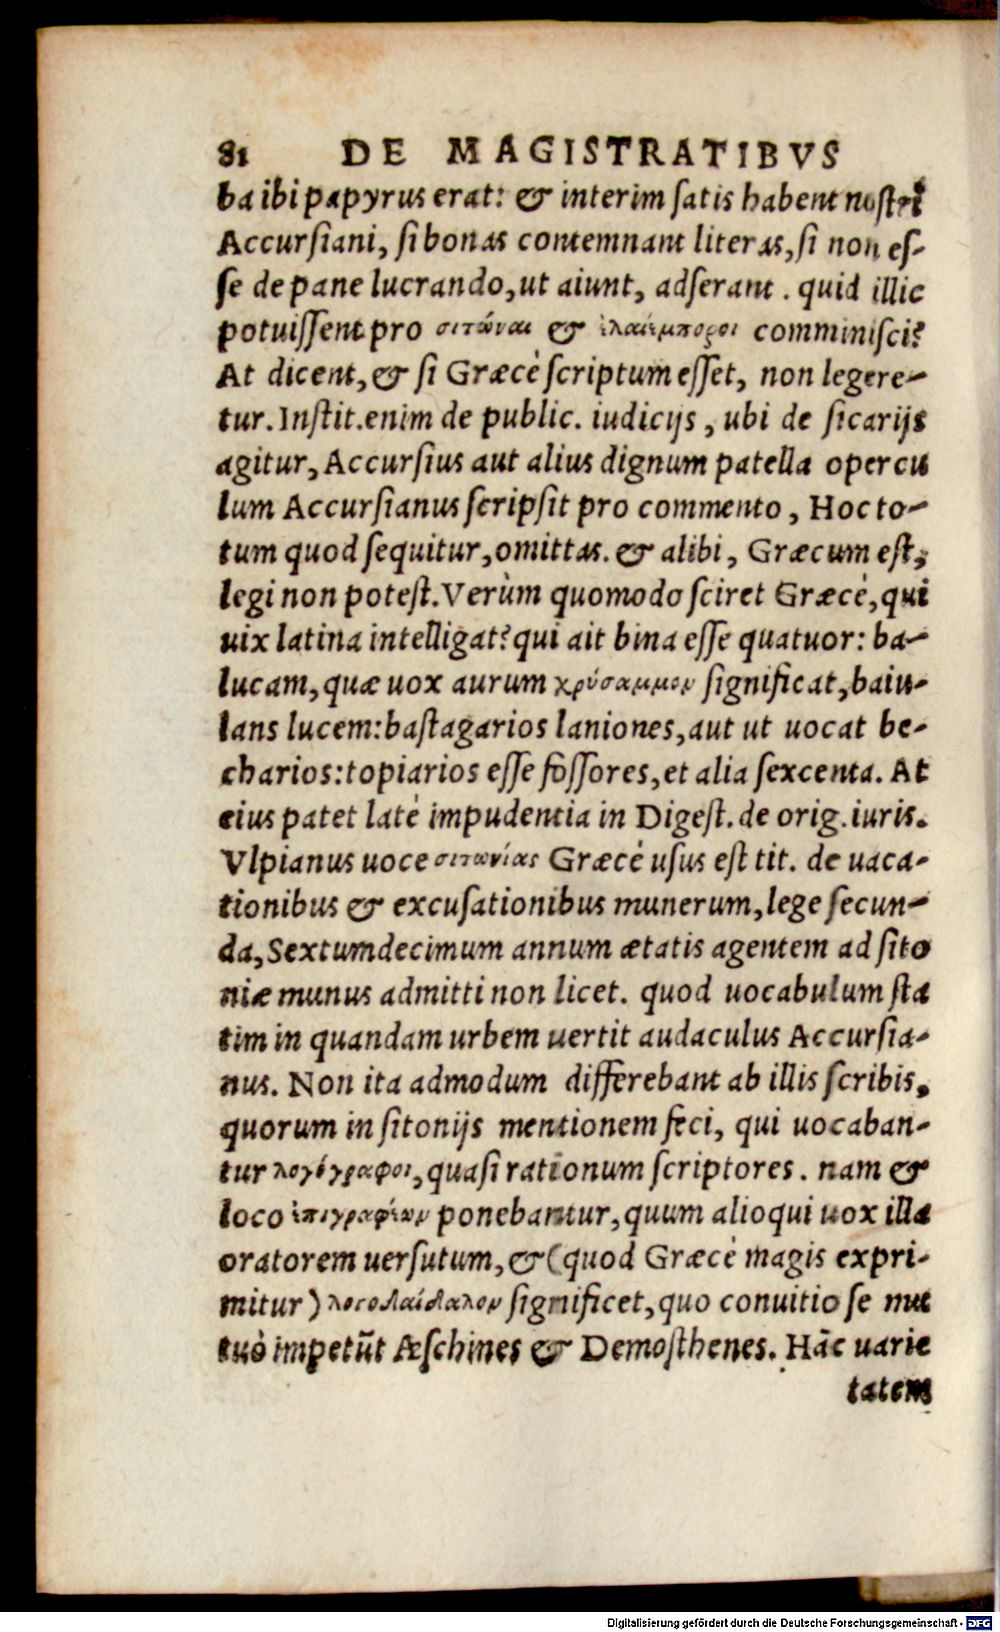 81 DE MAGISTRATIBVS
ba ibi papyrus erat: & interim ſatis habent noſtri
Accurſiani, ſi bonas contemnant literas, ſi non eſ-
ſe de pane lucrando, ut aiunt, adſerant. quid illic
potuiſſent pro σιτῶναι & ἐλαιέμποροι comminiſci?
At dicent, & ſi Græcè ſcriptum eſſet, non legere-
tur. Inſtit. enim de public. iudicijs, ubi de ſicarijs
agitur, Accurſius aut alius dignum patella opercu
lum Accurſianus ſcripſit pro commento, Hoc to-
tum quod ſequitur, omittas. & alibi, Græcum eſt,
legi non poteſt. Verùm quomodo ſciret Græcè, qui
uix latina intelligat? qui ait bina eſſe quatuor: ba-
lucam, quæ uox aurum χρύσαμμον ſignificat, baiu-
lans lucem: baſtagarios laniones, aut ut uocat be-
charios: topiarios eſſe foſſores, et alia ſexcenta. At
eius patet latè impudentia in Digeſt. de orig. iuris.
Vlpianus uoce σιτωνίας Græcè uſus eſt tit. de uaca-
tionibus & excuſationibus munerum, lege ſecun-
da, Sextumdecimum annum ætatis agentem ad ſito
niæ munus admitti non licet. quod uocabulum ſta
tim in quandam urbem uertit audaculus Accurſia-
nus. Non ita admodum differebant ab illis ſcribis,
quorum in ſitonijs mentionem feci, qui uocaban-
tur λογόγραφοι, quaſi rationum ſcriptores. nam &
loco ἐπιγραφέων ponebantur, quum alioqui uox illa
oratorem uerſutum, & (quod Græcè magis expri-
mitur) λογοδαίδαλον ſignificet, quo conuitio ſe mu
tuò impetũt Æſchines & Demoſthenes. Hãc uarie
tatem
Digitalisierung gefördert durch die Deutsche Forschungsgemeinschaft - DFG